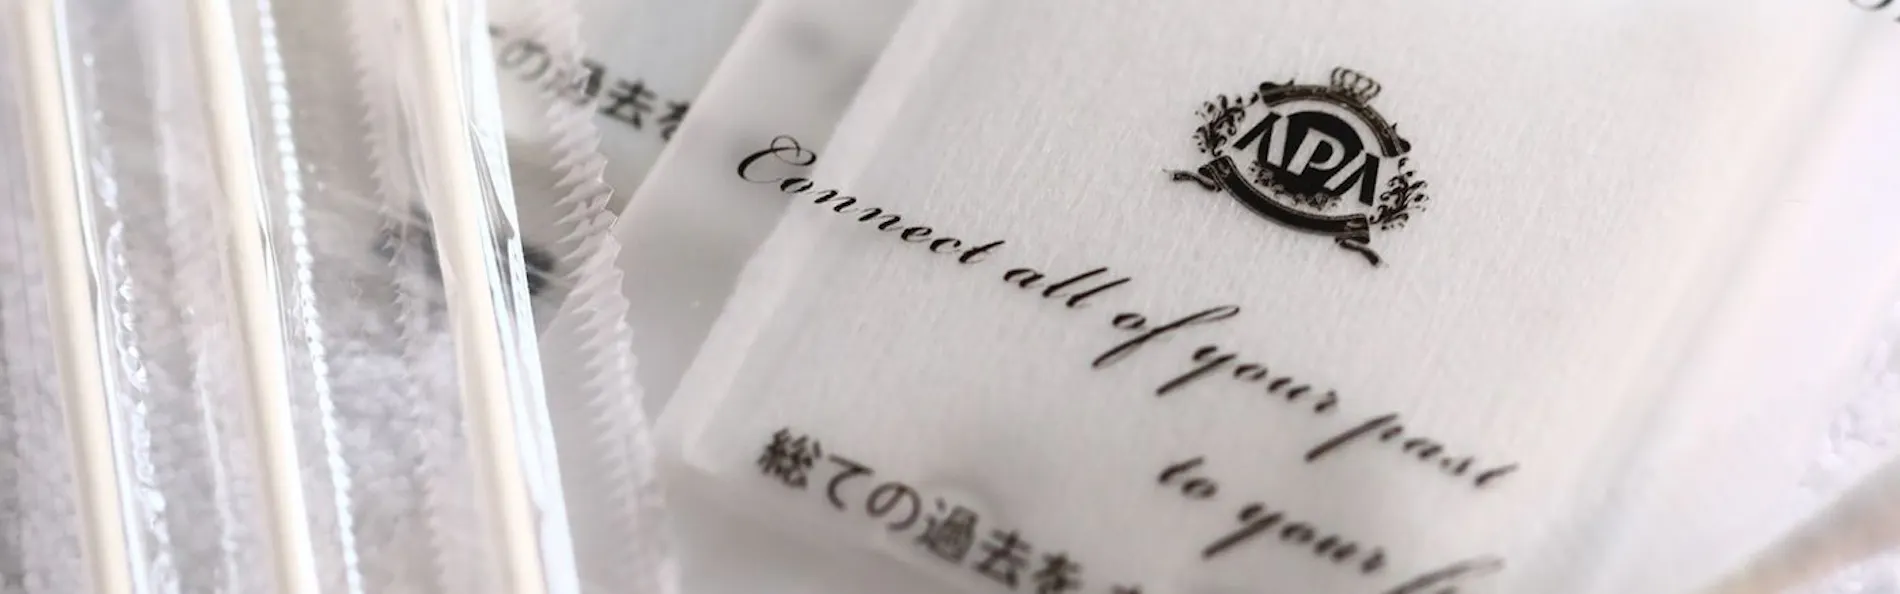 の過去を
APA
Connect all of your past
to your
総ての過去を